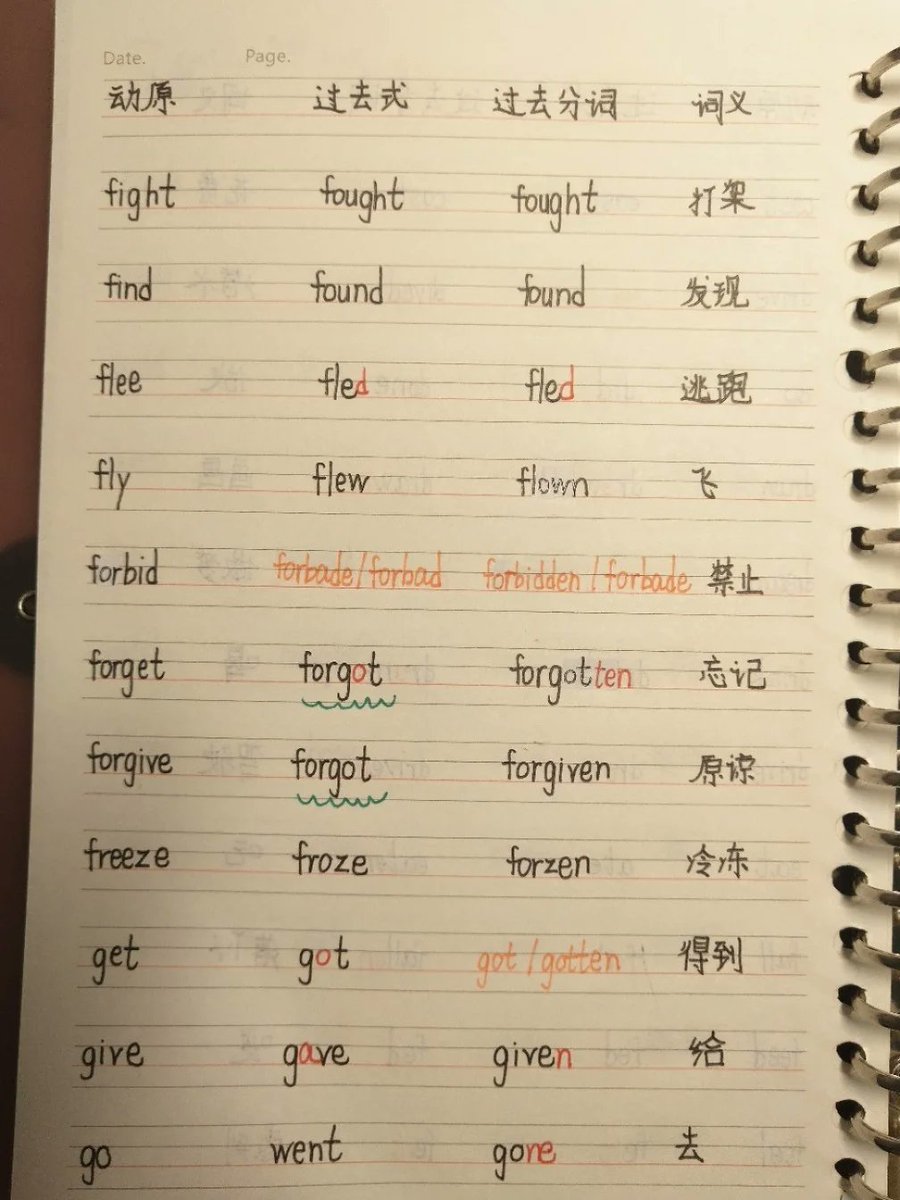 Date. Page.
动原 过去式 过去分词 词义
fight fought fought 打架
find found found 发现
flee fled fled 逃跑
fly flew flown 飞
forbid forbade/forbad forbidden/forbade 禁止
forget forgot forgotten 忘记
forgive forgot forgiven 原谅
freeze froze forzen 冷冻
get got got/gotten 得到
give gave given 给
go went gone 去